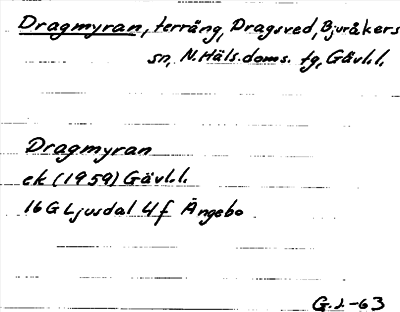 Dragmyran, terräng, Dragsved, Bjuråkers
sn, N. Häls. doms. tg, Gävl.l.
Dragmyran
ek (1959) Gävl.l.
16G Ljusdal 4f Ängebo
G.J.-63